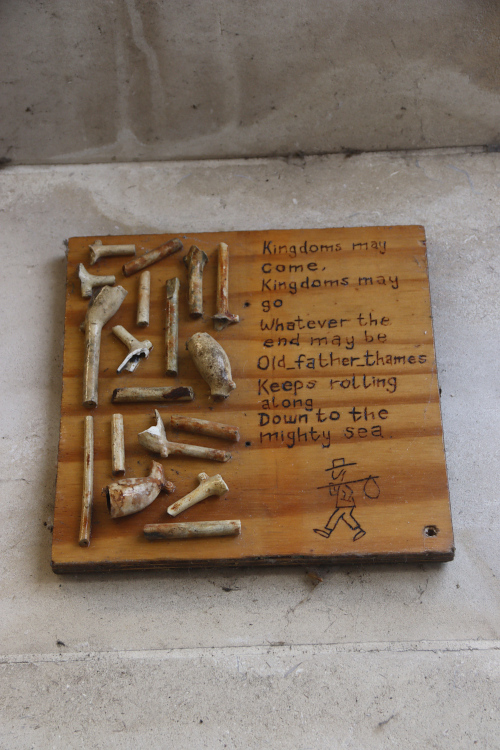 Kingdoms may
come,
Kingdoms may
go
Whatever the
end may be
Old_father_thames
Keeps rolling
along
Down to the
mighty sea